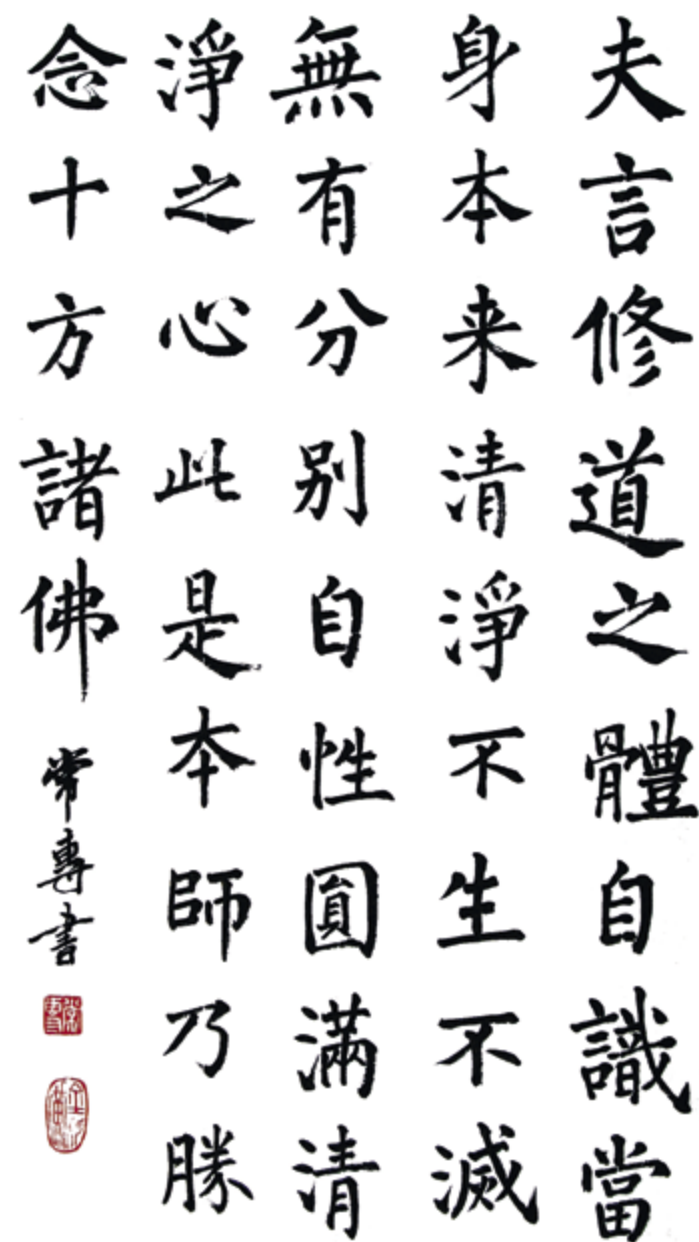 夫言修道之體自識當
身本来清淨不生不滅
無有分别自性圓滿清
淨之心此是夲師乃勝
念十方諸佛
常專書